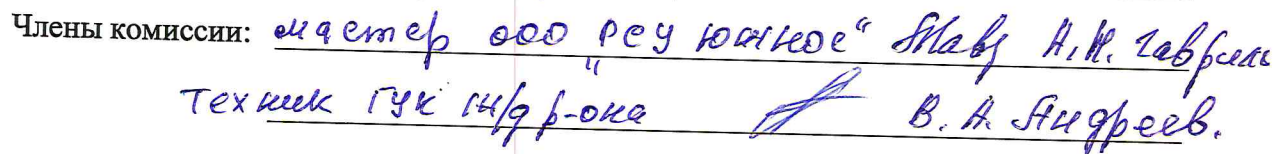 Члены комиссии: мастер ооо "РСУ Южное" А.Н. Гаврил
техник ГУК ж/д р-она В.А. Андреев.